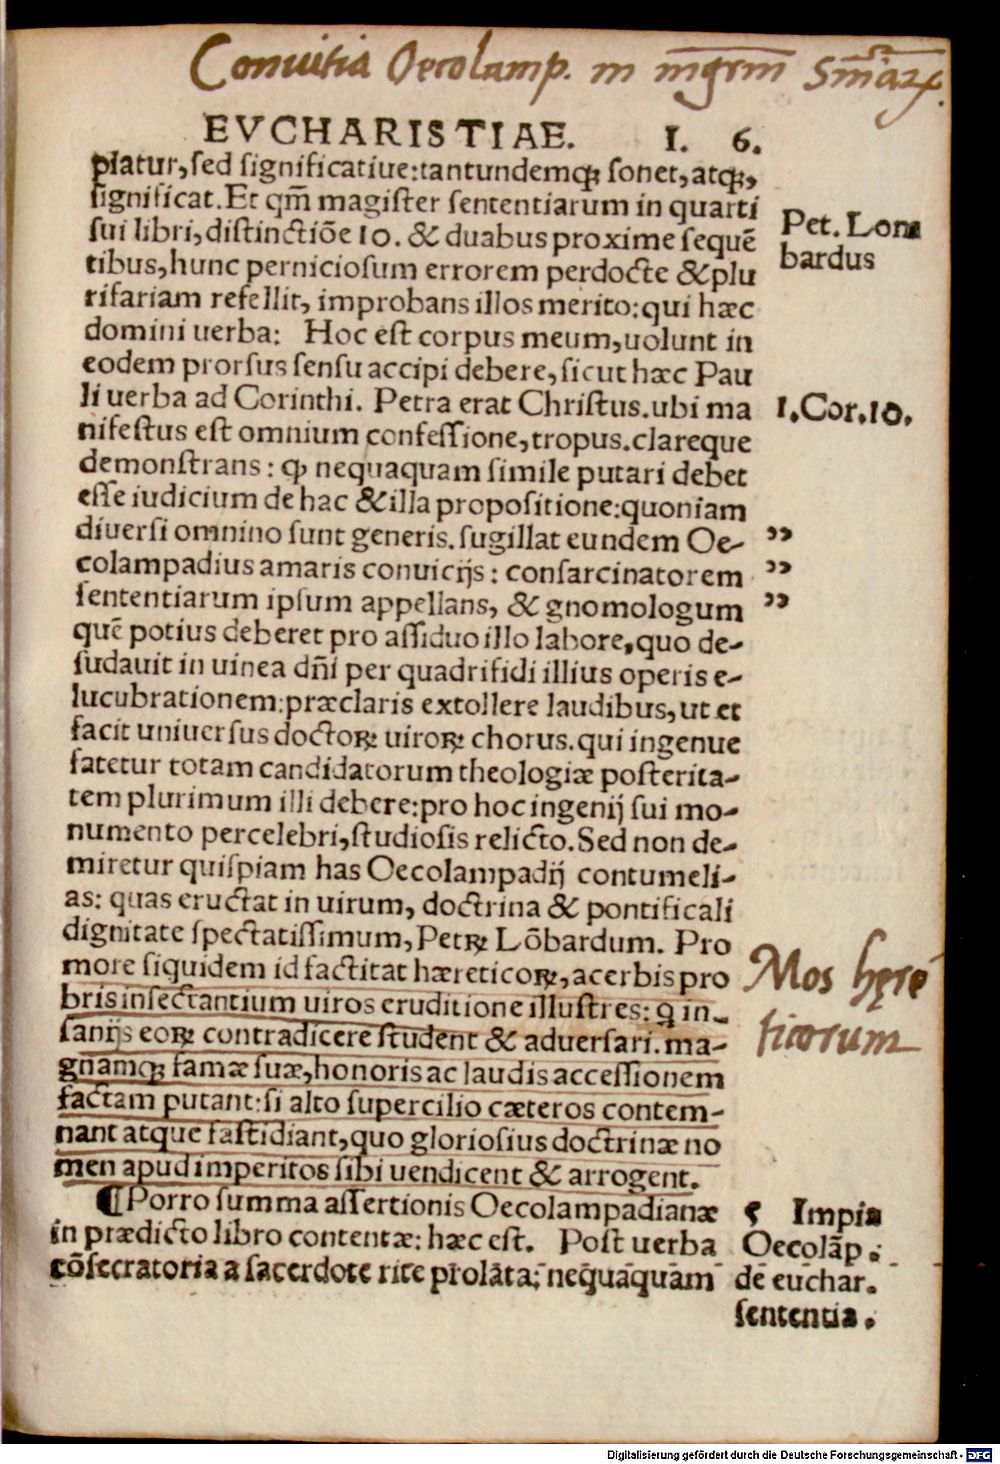 Conuitia Oecolamp. in mgrm̄ Sm̄iaꝝ.
EVCHARISTIAE. I. 6.
platur, sed significatiue: tantundemq̃ꝫ sonet, atq̃ꝫ,
significat. Et qm̄ magister sententiarum in quarti
sui libri, distinctiõe 10. & duabus proxime sequẽ
Pet. Lom
tibus, hunc perniciosum errorem perdocte & plu
bardus
rifariam refellit, improbans illos merito: qui hæc
domini uerba: Hoc est corpus meum, uolunt in
eodem prorsus sensu accipi debere, sicut hæc Pau
li uerba ad Corinthi. Petra erat Christus. ubi ma
1. Cor. 10.
nifestus est omnium confessione, tropus. clareque
demonstrans: ꝙ nequaquam simile putari debet
esse iudicium de hac & illa propositione: quoniam
diuersi omnino sunt generis. sugillat eundem Oe-
”
colampadius amaris conuicijs: consarcinatorem
”
sententiarum ipsum appellans, & gnomologum
”
quẽ potius deberet pro assiduo illo labore, quo de-
sudauit in uinea dñi per quadrifidi illius operis e-
lucubrationem: præclaris extollere laudibus, ut et
facit uniuersus doctoꝝ uiroꝝ chorus. qui ingenue
fatetur totam candidatorum theologiæ posterita-
tem plurimum illi debere: pro hoc ingenij sui mo-
numento percelebri, studiosis relicto. Sed non de-
miretur quispiam has Oecolampadij contumeli-
as: quas eructat in uirum, doctrina & pontificali
dignitate spectatissimum, Petꝝ Lõbardum. Pro
more siquidem id factitat hæreticoꝝ, acerbis pro
Mos hęre
bris insectantium uiros eruditione illustres: q̃ in-
sanijs eoꝝ contradicere student & aduersari. ma-
ticorum
gnamq̃ꝫ famæ suæ, honoris ac laudis accessionem
factam putant: si alto supercilio cæteros contem-
nant atque fastidiant, quo gloriosius doctrinæ no
men apud imperitos sibi uendicent & arrogent.
¶ Porro summa assertionis Oecolampadianæ
¶ Impia
in prædicto libro contentæ: hæc est. Post uerba
Oecolãp.
cõsecratoria a sacerdote rite prolata: nequaquam
de euchar.
sententia.
Digitalisierung gefördert durch die Deutsche Forschungsgemeinschaft - DFG